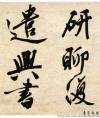 研聊復
遣興書